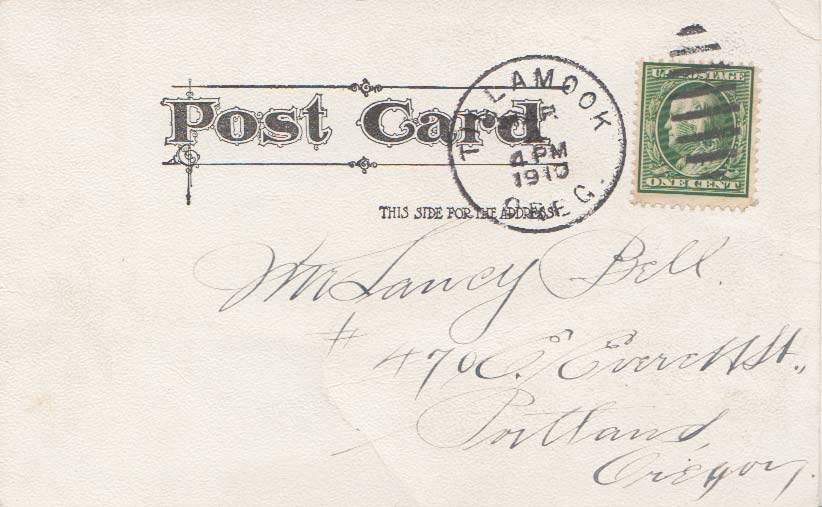 Post Card
TILLAMOOK
4 PM
1910
OREG.
U.S. POSTAGE
ONE CENT
THIS SIDE FOR THE ADDRESS
Mr Lancy Bell.
# 470 E. Everett St.,
Portland,
Oregon.